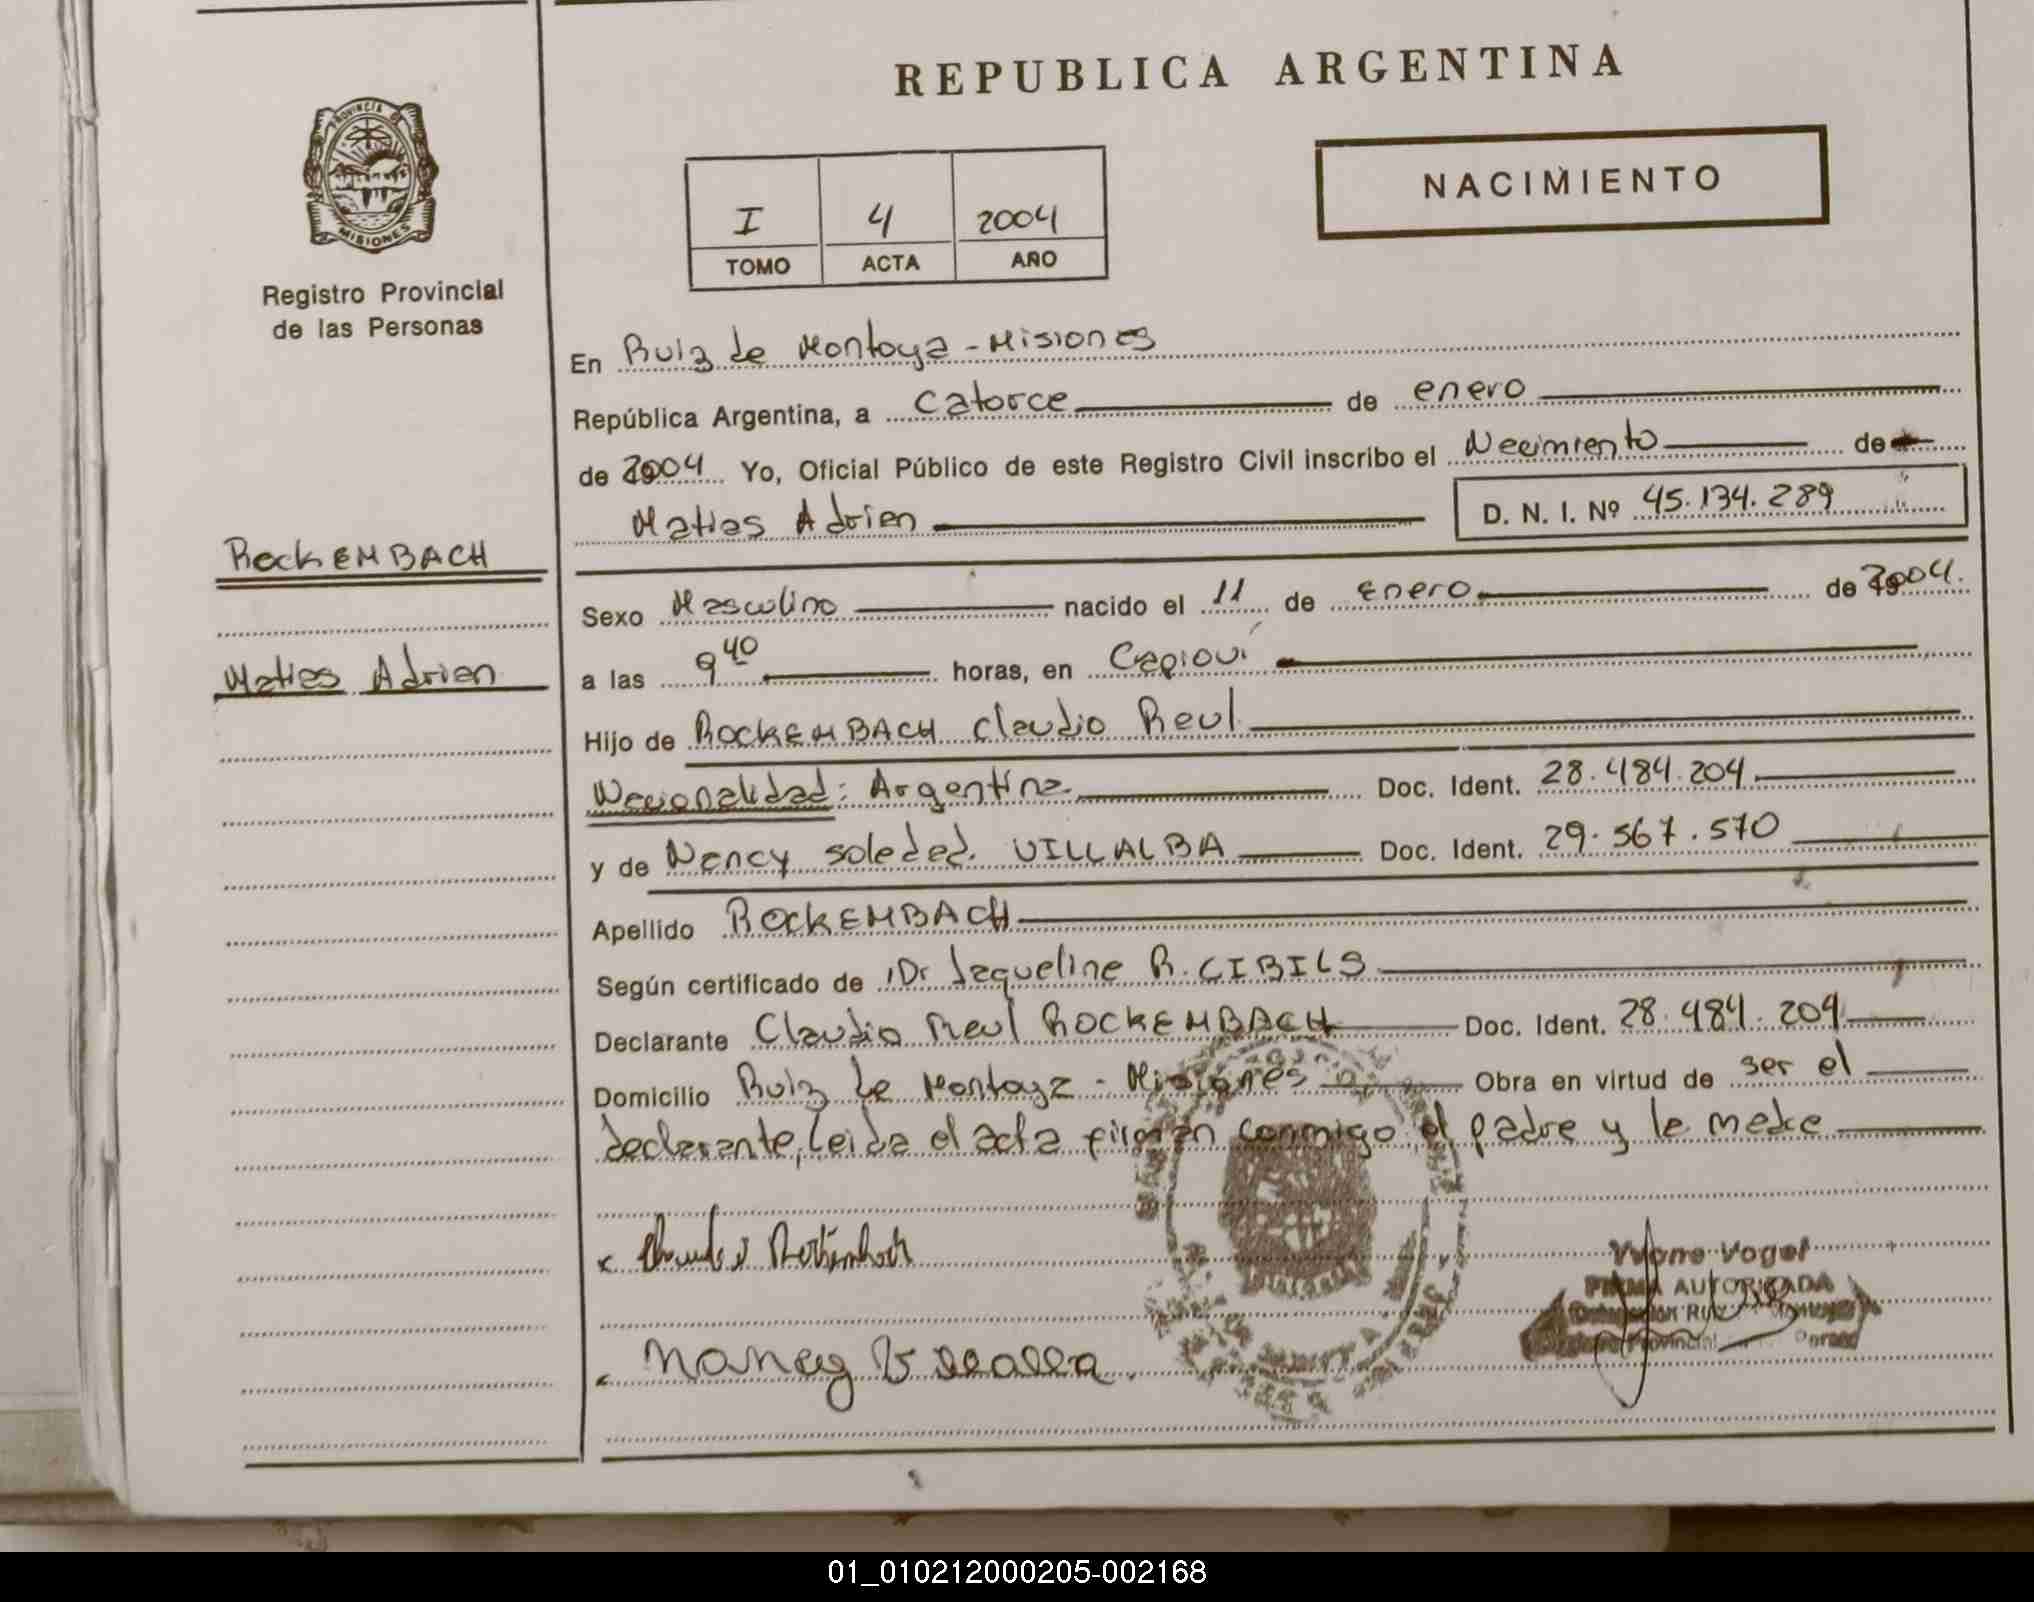 REPUBLICA ARGENTINA
PROVINCIA DE
MISIONES
Registro Provincial
de las Personas
NACIMIENTO
I 4 2004
TOMO ACTA AÑO
En Ruiz de Montoya - Misiones
República Argentina, a catorce de enero
de 2004 Yo, Oficial Público de este Registro Civil inscribo el Nacimiento de
Matias Adrian D. N. I. Nº 45.134.289
RockEMBACH
Matias Adrian
Sexo Masculino nacido el 11 de Enero de 2004.
a las 9 40 horas, en Capioví
Hijo de ROCKEMBACH Claudio Raul
Nacionalidad: Argentina Doc. Ident. 28.484.204
y de Nancy soledad. VILLALBA Doc. Ident. 29.567.570
Apellido ROCKEMBACH
Según certificado de Dr Jaqueline R. CIBILS
Declarante Claudio Raul ROCKEMBACH Doc. Ident. 28.484.204
Domicilio Ruiz de Montoya - Misiones Obra en virtud de ser el
declarante, leida el acta firman conmigo el padre y la madre
Yvone Vogel
FIRMA AUTORIZADA
Nancy Villalba
01_010212000205-002168